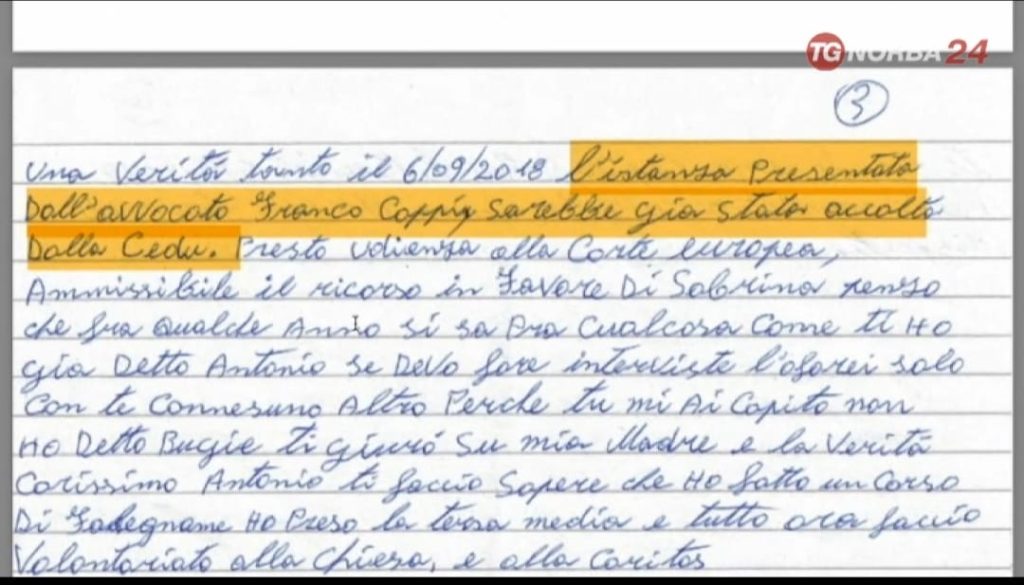 TG NORBA 24
3
Una Verità tanto il 6/09/2018 l'istanza Presentata
Dall'avvocato Franco Coppi, sarebbe già stata accolta
Dalla Cedu. Presto udienza alla Corte europea,
Ammissibile il ricorso in favore Di Sabrina penso
che fra qualche Anno si sa Pra Cualcosa Come ti Ho
già Detto Antonio se Devo fare interviste l'ofarei solo
Con te Connesuno Altro Perche tu mi Ai Capito non
Ho Detto Bugie ti giuró su mia Madre e la Verità
Carissimo Antonio ti faccio Sapere che Ho fatto un Corso
Di Falegname Ho Preso la tersa media e tutto ora faccio
Volontariato alla Chiesa, e alla Caritas